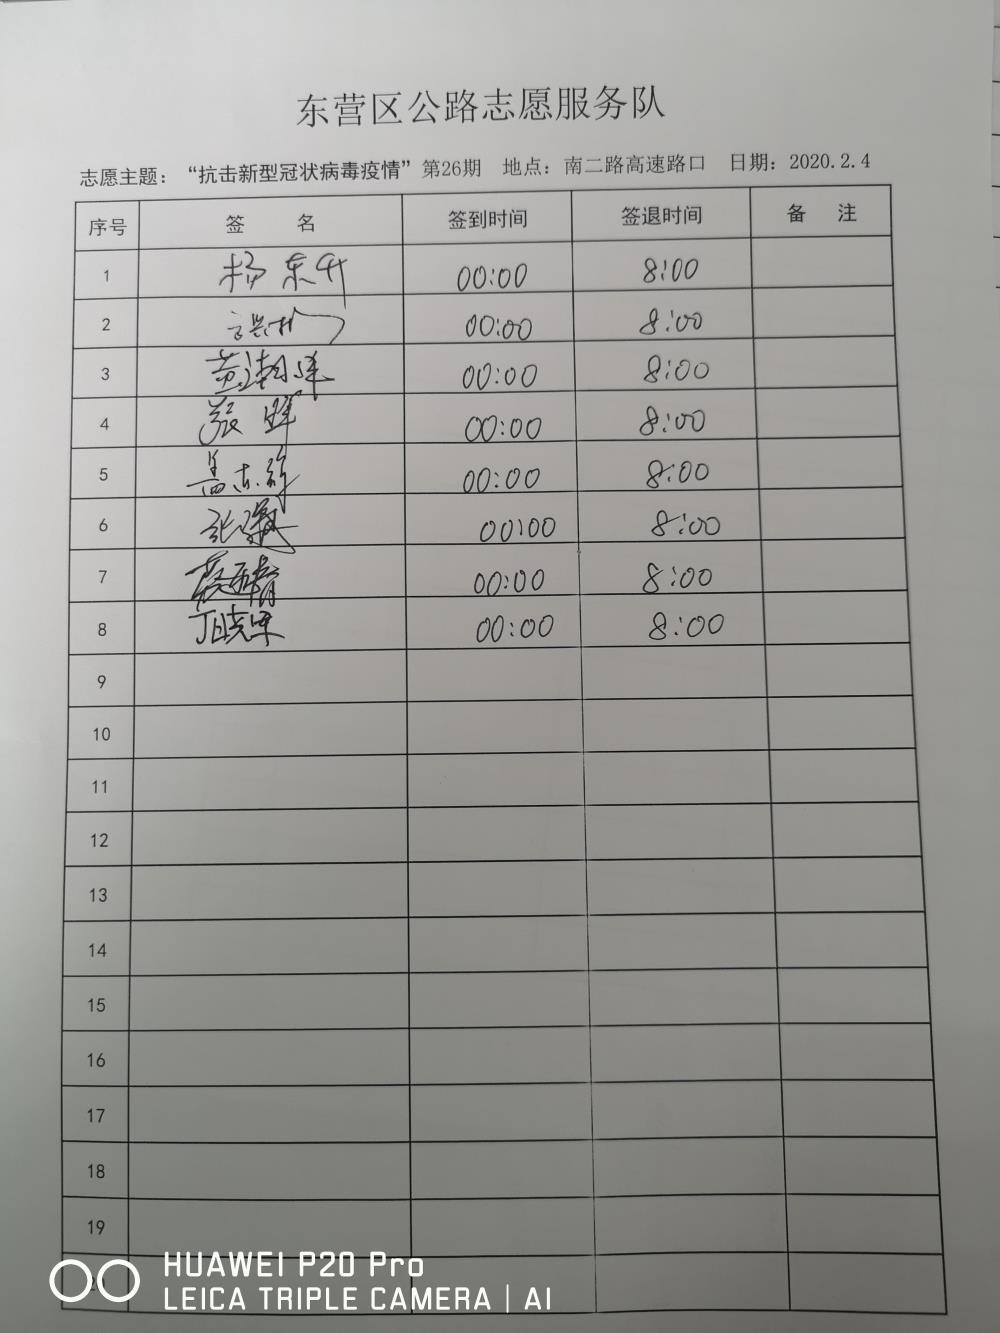 东营区公路志愿服务队
志愿主题：“抗击新型冠状病毒疫情”第26期 地点：南二路高速路口 日期：2020.2.4
序号 签 名 签到时间 签退时间 备 注
1 杨东升 00:00 8:00
2 00:00 8:00
3 00:00 8:00
4 00:00 8:00
5 00:00 8:00
6 张 00:00 8:00
7 00:00 8:00
8 丁晓军 00:00 8:00
9
10
11
12
13
14
15
16
17
18
19
20
HUAWEI P20 Pro
LEICA TRIPLE CAMERA | AI